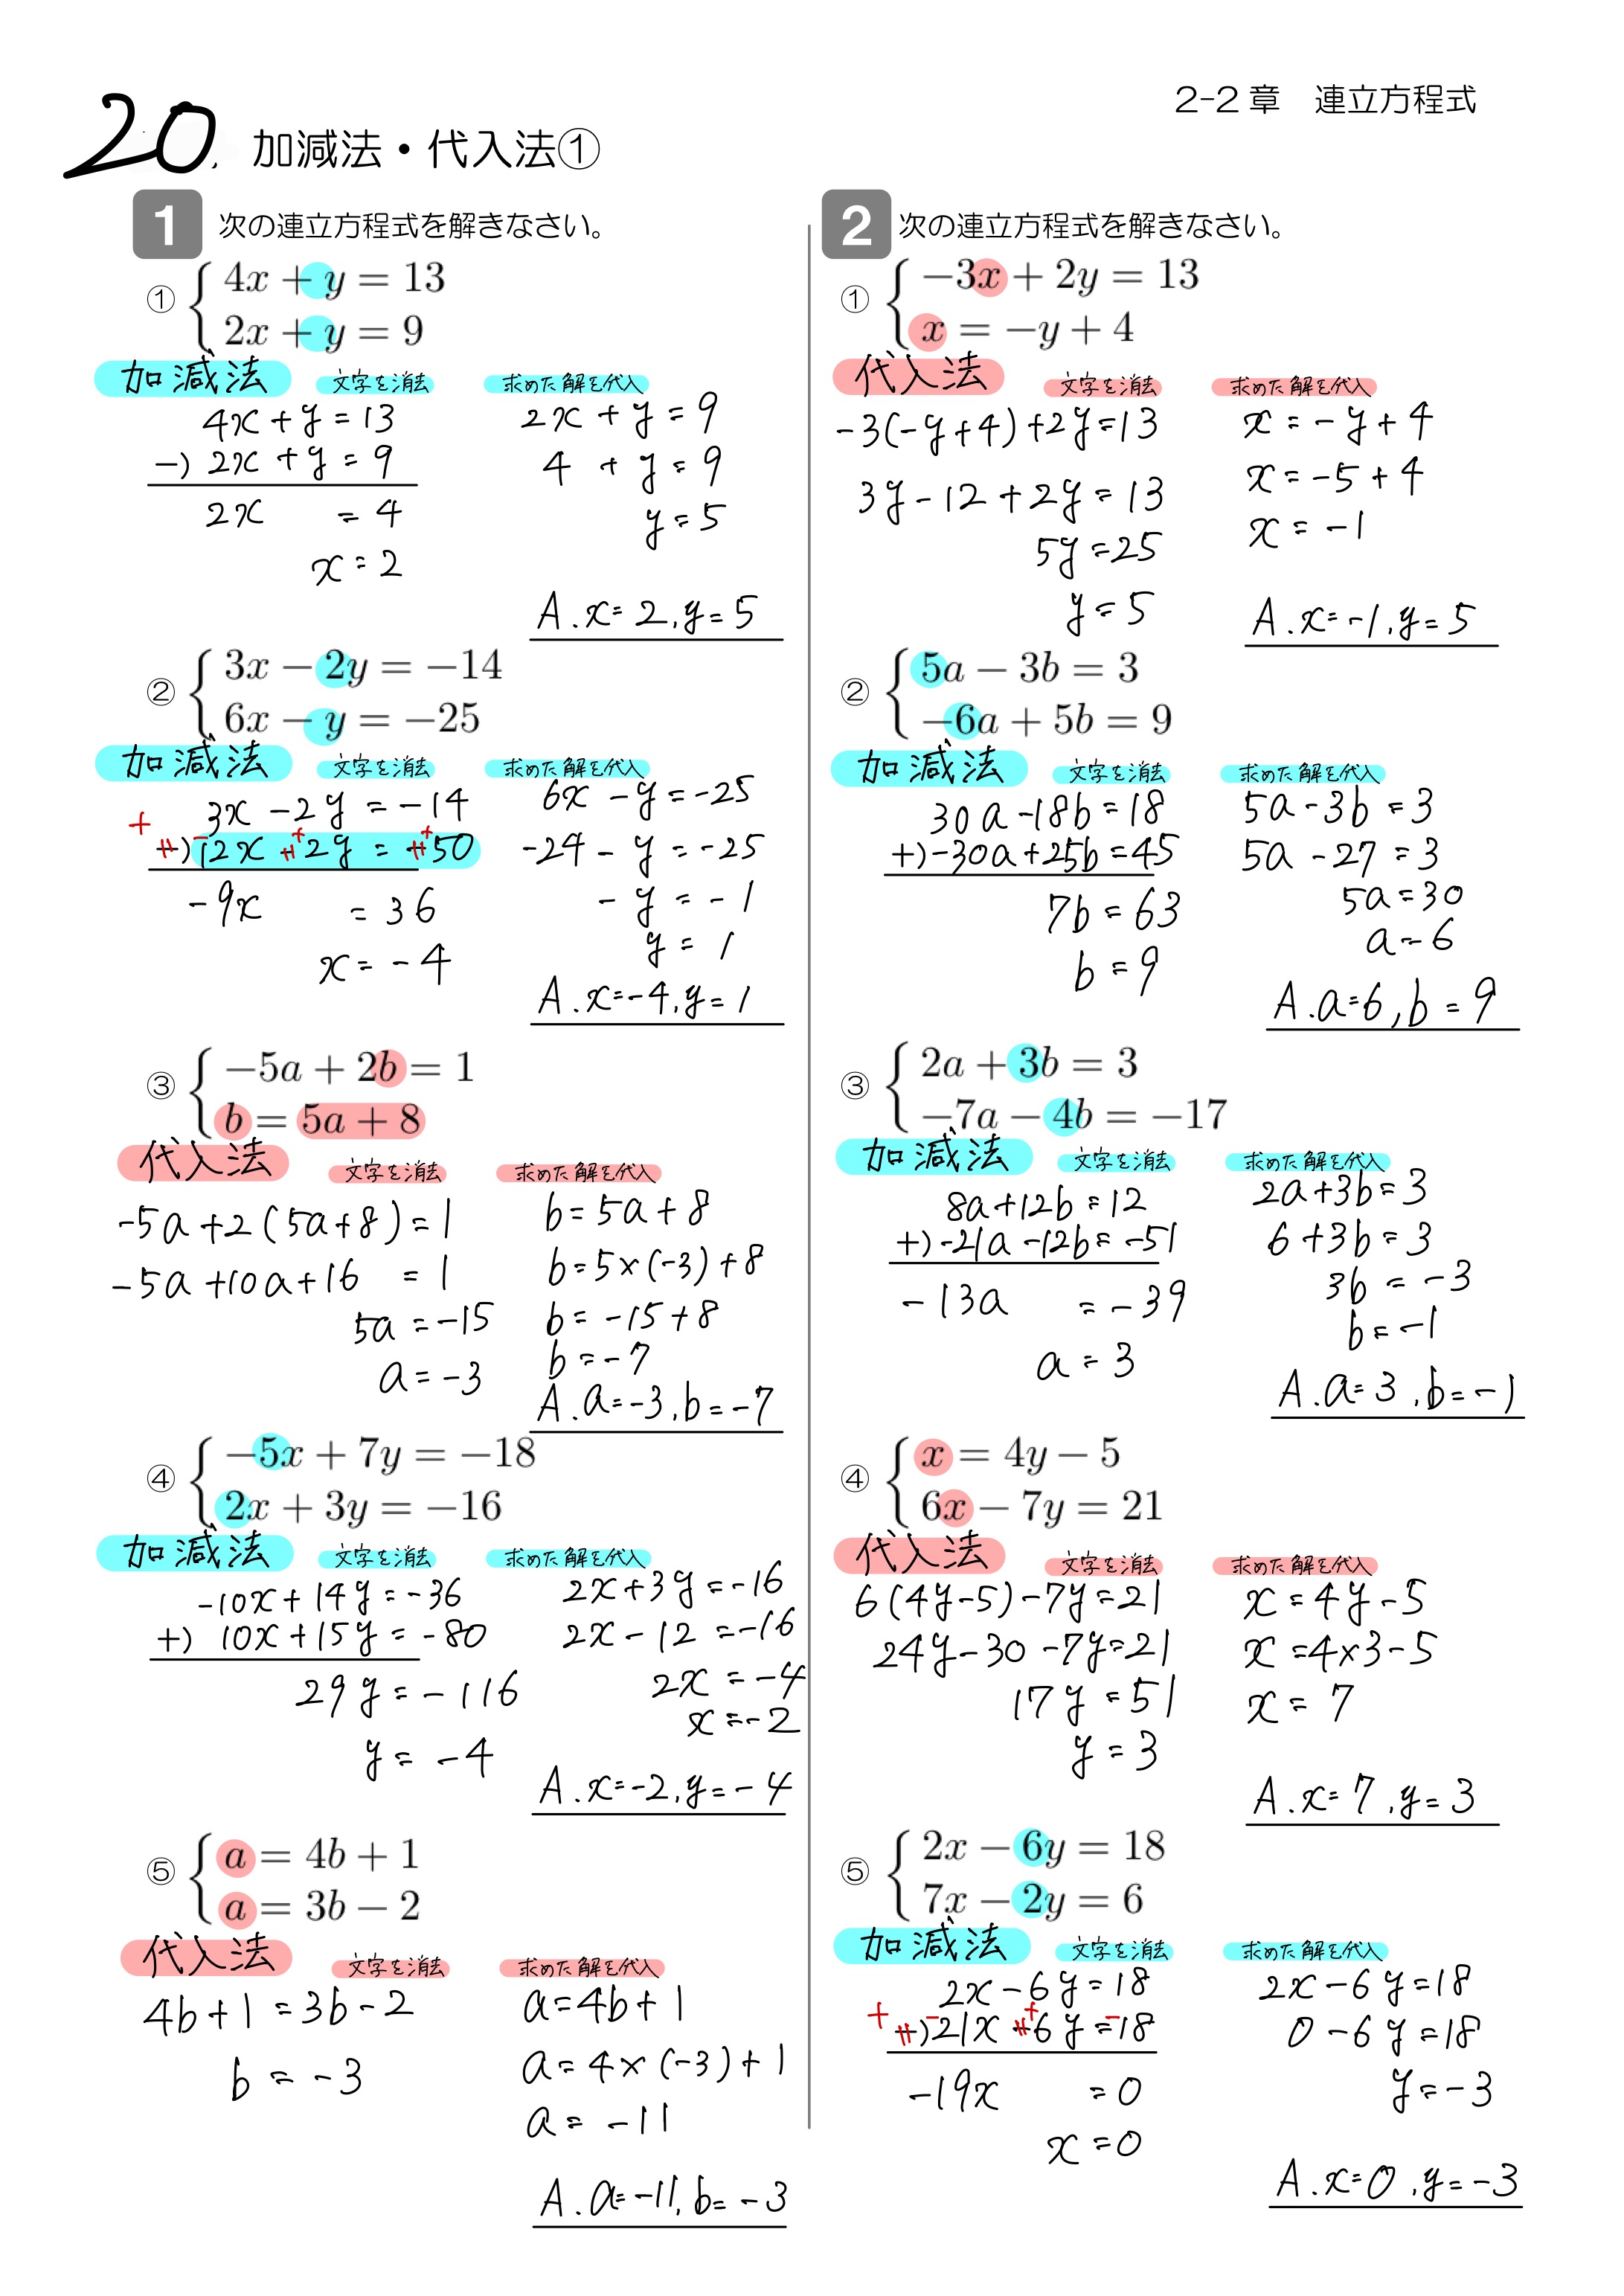 2-2章 連立方程式
20. 加減法・代入法①
1 次の連立方程式を解きなさい。
① { 4x + y = 13
2x + y = 9
加減法 文字を消去 求めた解を代入
4x + y = 13
-) 2x + y = 9
2x = 4
x = 2
2x + y = 9
4 + y = 9
y = 5
A. x=2, y=5
② { 3x − 2y = −14
6x − y = −25
加減法 文字を消去 求めた解を代入
3x - 2y = -14
+ -) - 12x + - 2y = + - 50
-9x = 36
x = -4
6x - y = -25
-24 - y = -25
- y = -1
y = 1
A. x=-4, y=1
③ { −5a + 2b = 1
b = 5a + 8
代入法 文字を消去 求めた解を代入
-5a+2(5a+8)=1
-5a+10a+16 = 1
5a = -15
a = -3
b = 5a + 8
b = 5×(-3)+8
b = -15+8
b = -7
A. a=-3, b=-7
④ { −5x + 7y = −18
2x + 3y = −16
加減法 文字を消去 求めた解を代入
-10x+14y = -36
+) 10x+15y = -80
29y = -116
y = -4
2x+3y = -16
2x-12 = -16
2x = -4
x = -2
A. x=-2, y=-4
⑤ { a = 4b + 1
a = 3b − 2
代入法 文字を消去 求めた解を代入
4b+1 = 3b-2
b = -3
a = 4b+1
a = 4×(-3)+1
a = -11
A. a=-11, b=-3
2 次の連立方程式を解きなさい。
① { −3x + 2y = 13
x = −y + 4
代入法 文字を消去 求めた解を代入
-3(-y+4)+2y=13
3y-12+2y=13
5y=25
y=5
x = -y+4
x = -5+4
x = -1
A. x=-1, y=5
② { 5a − 3b = 3
−6a + 5b = 9
加減法 文字を消去 求めた解を代入
30a-18b=18
+)-30a+25b=45
7b = 63
b = 9
5a-3b = 3
5a-27 = 3
5a=30
a=6
A. a=6, b=9
③ { 2a + 3b = 3
−7a − 4b = −17
加減法 文字を消去 求めた解を代入
8a+12b=12
+)-21a-12b=-51
-13a = -39
a = 3
2a+3b=3
6+3b=3
3b = -3
b=-1
A. a=3, b=-1
④ { x = 4y − 5
6x − 7y = 21
代入法 文字を消去 求めた解を代入
6(4y-5)-7y=21
24y-30-7y=21
17y = 51
y = 3
x = 4y-5
x = 4×3-5
x = 7
A. x=7, y=3
⑤ { 2x − 6y = 18
7x − 2y = 6
加減法 文字を消去 求めた解を代入
2x-6y=18
+ -) - 21x + - 6y = - 18
-19x = 0
x = 0
2x-6y=18
0-6y=18
y=-3
A. x=0, y=-3